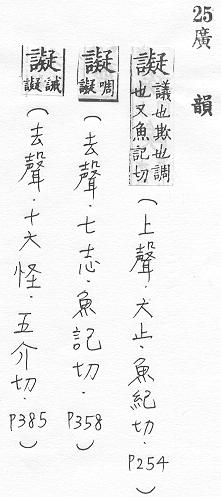 25廣韻
譺議也欺也調也又魚記切(上聲．六止．魚紀切．P254)
譺啁譺(去聲．七志．魚記切．P358)
譺譺誡(去聲．十六怪．五介切．P385)